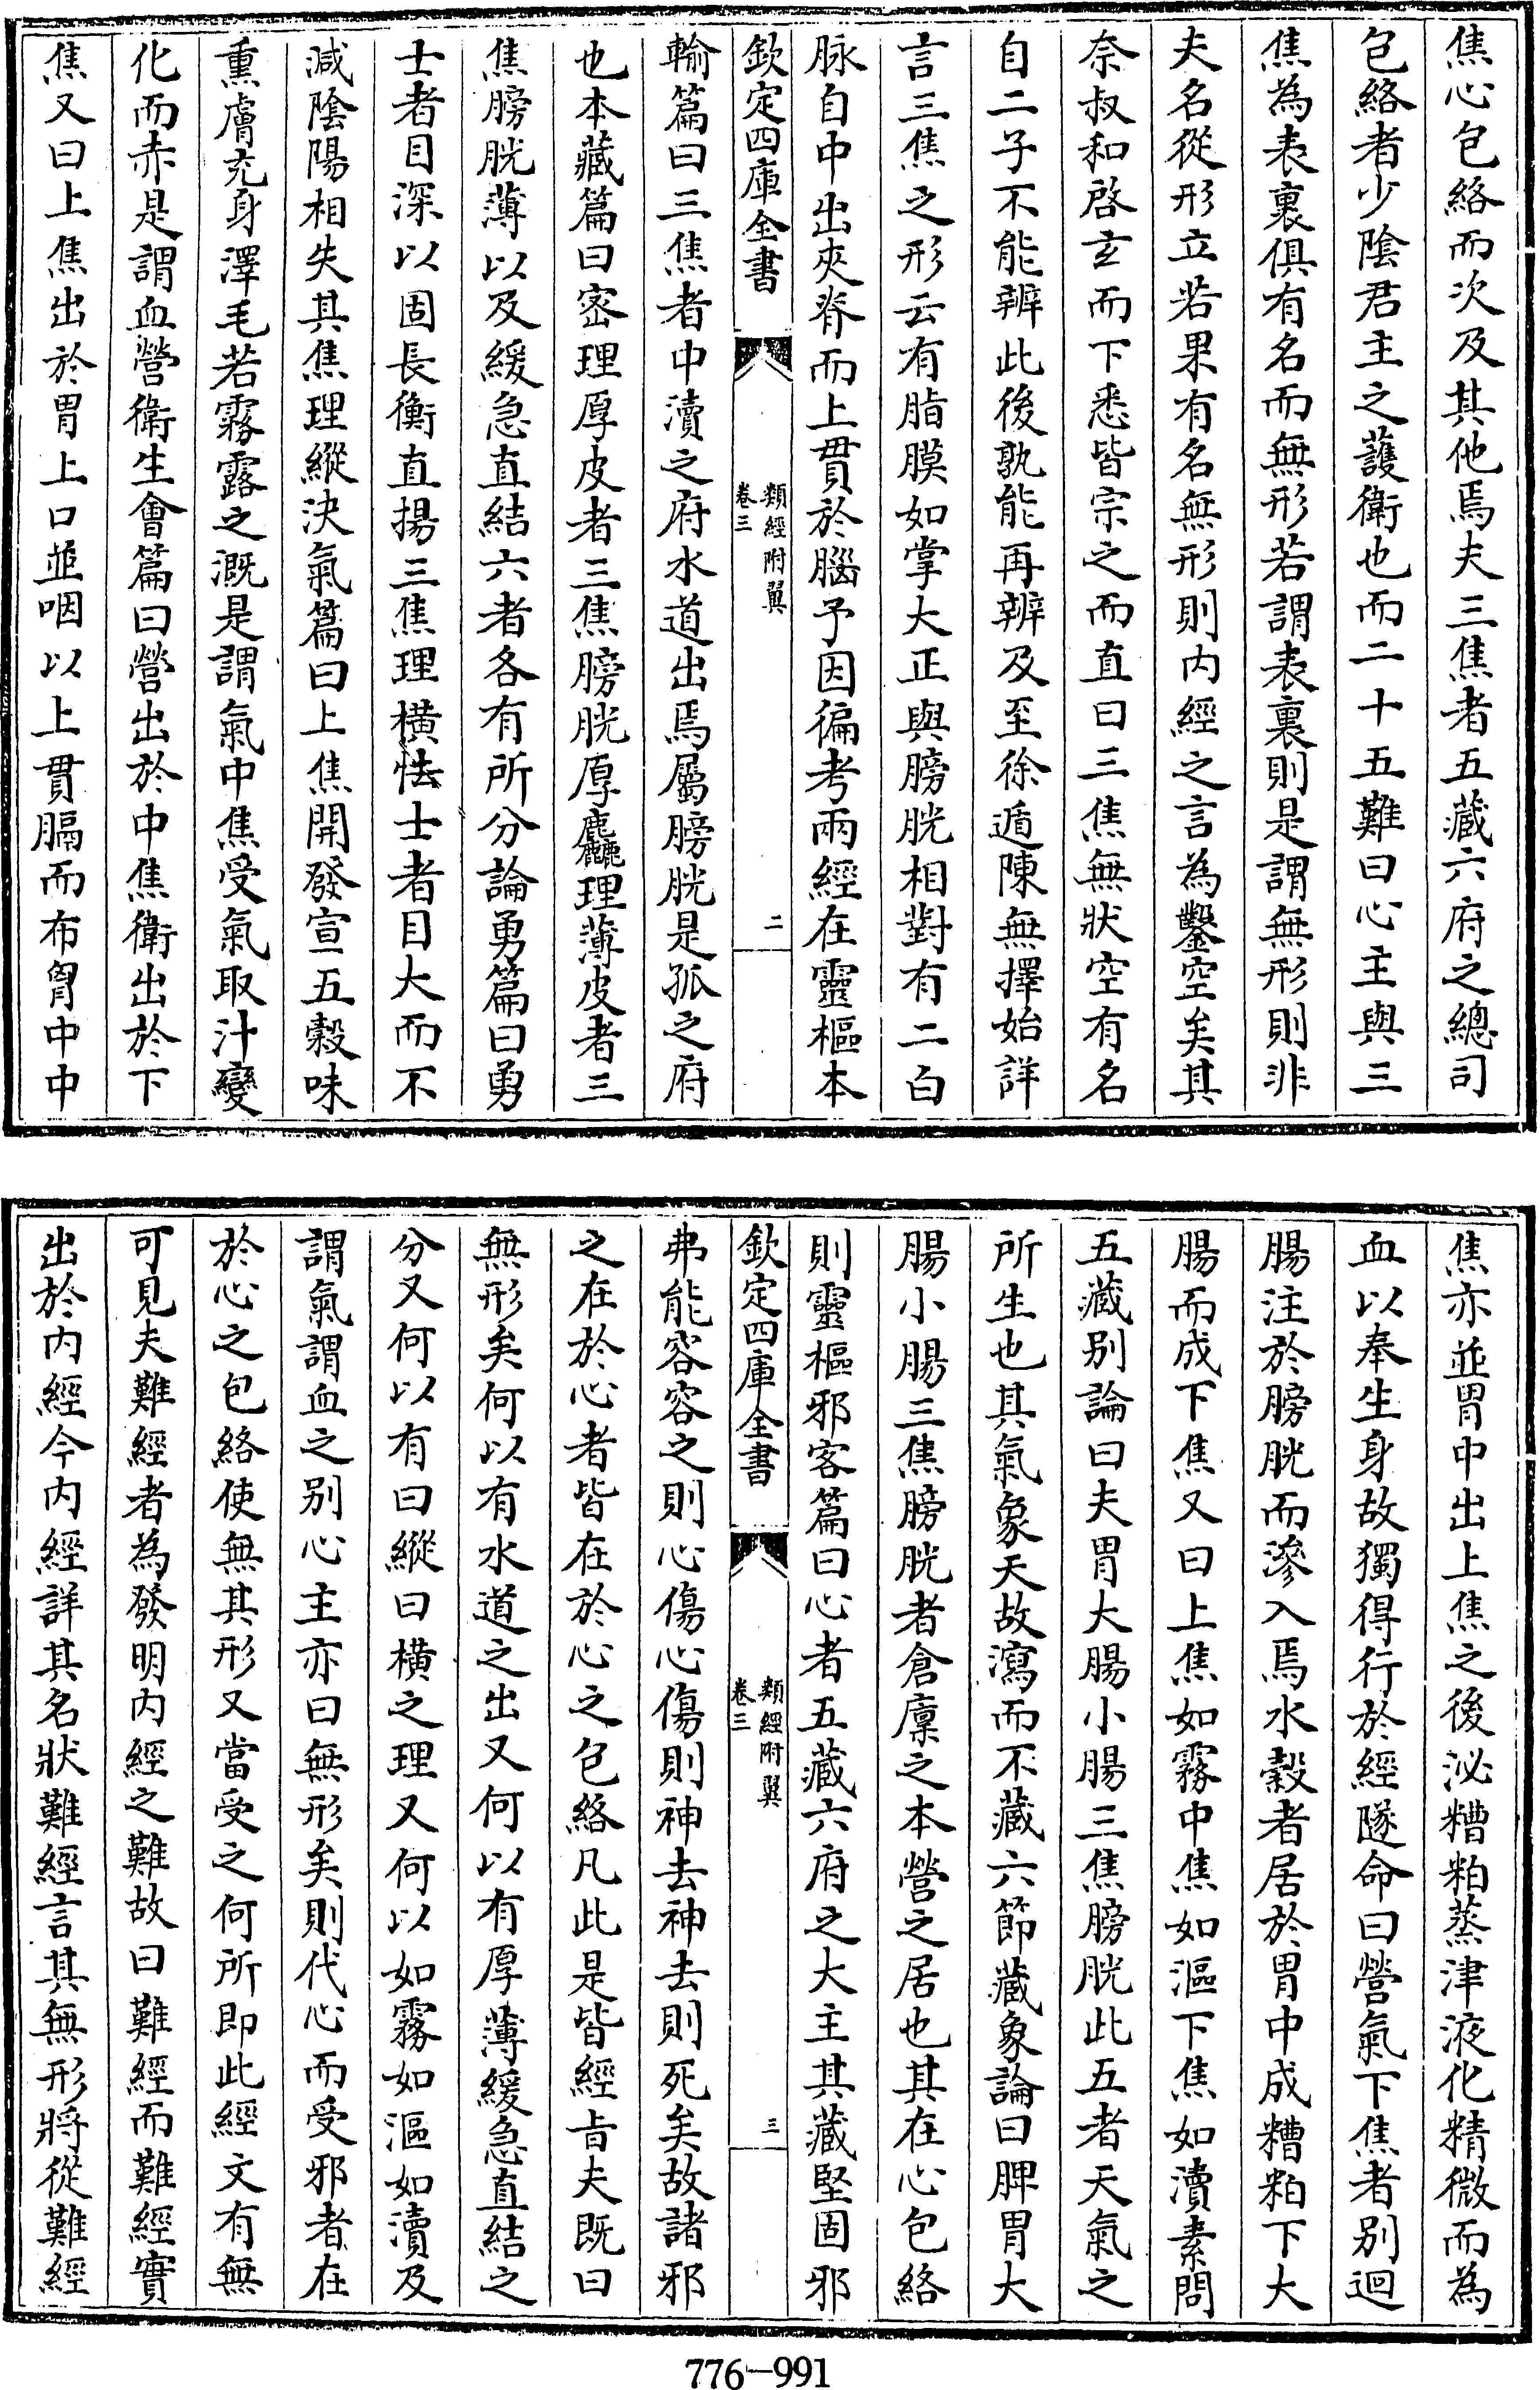 焦心包絡而次及其他焉夫三焦者五藏六府之總司
包絡者少陰君主之護衛也而二十五難曰心主與三
焦為表裏俱有名而無形若謂表裏則是謂無形則非
夫名從形立若果有名無形則内經之言為鑿空矣其
奈叔和啓玄而下悉皆宗之而直曰三焦無狀空有名
自二子不能辨此後孰能再辨及至徐遁陳無擇始詳
言三焦之形云有脂膜如掌大正與膀胱相對有二白
脉自中出夾脊而上貫於腦予因徧考兩經在靈樞本
欽定四庫全書
類經附翼
卷三
二
輸篇曰三焦者中瀆之府水道出焉屬膀胱是孤之府
也本藏篇曰宻理厚皮者三焦膀胱厚麤理薄皮者三
焦膀胱薄以及緩急直結六者各有所分論勇篇曰勇
士者目深以固長衡直揚三焦理橫怯士者目大而不
減陰陽相失其焦理縱決氣篇曰上焦開發宣五穀味
熏膚充身澤毛若霧露之溉是謂氣中焦受氣取汁變
化而赤是謂血營衛生會篇曰營出於中焦衛出於下
焦又曰上焦出於胃上口並咽以上貫膈而布胷中中
焦亦並胃中出上焦之後泌糟粕蒸津液化精微而為
血以奉生身故獨得行於經隧命曰營氣下焦者别迴
腸注於膀胱而滲入焉水穀者居於胃中成糟粕下大
腸而成下焦又曰上焦如霧中焦如漚下焦如瀆素問
五藏别論曰夫胃大腸小腸三焦膀胱此五者天氣之
所生也其氣象天故瀉而不藏六節藏象論曰脾胃大
腸小腸三焦膀胱者倉廩之本營之居也其在心包絡
則靈樞邪客篇曰心者五藏六府之大主其藏堅固邪
欽定四庫全書
類經附翼
卷三
三
弗能容容之則心傷心傷則神去神去則死矣故諸邪
之在於心者皆在於心之包絡凡此是皆經旨夫既曰
無形矣何以有水道之出又何以有厚薄緩急直結之
分又何以有曰縱曰橫之理又何以如霧如漚如瀆及
謂氣謂血之别心主亦曰無形矣則代心而受邪者在
於心之包絡使無其形又當受之何所即此經文有無
可見夫難經者為發明内經之難故曰難經而難經實
出於内經今内經詳其名狀難經言其無形將從難經
776-991